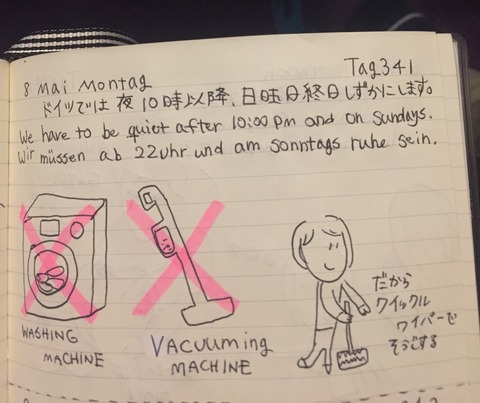 8 Mai Montag
Tag341
ドイツでは 夜10時以降、日曜日終日しずかにします。
We have to be quiet after 10:00 pm and on Sundays.
Wir müssen ab 22Uhr und am sonntags ruhe sein.
WASHING
MACHINE
VAcuuming
MACHINE
だから
クイックル
ワイパーで
そうじする